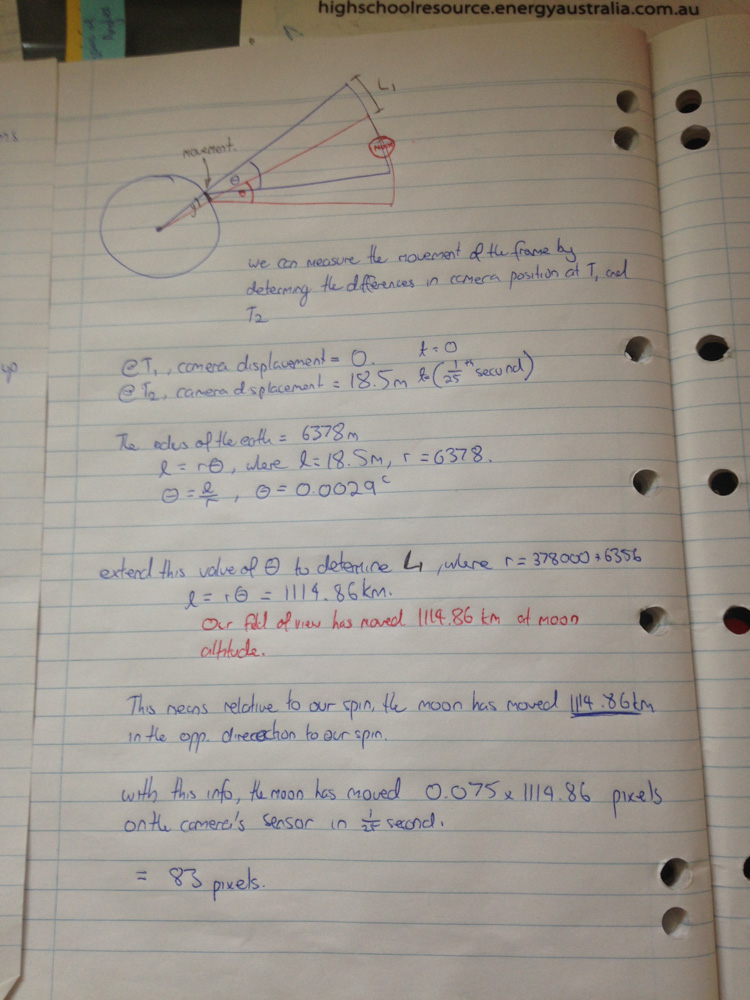 highschoolresource.energyaustralia.com.au
L₁
movement.
θ
moon
θ
we can measure the movement of the frame by
determing the differences in camera position at T₁ and
T₂
@T₁, camera displacement = 0. t = 0
@T₂, camera displacement = 18.5m t=(1/25 th second)
The radius of the earth = 6378m
l = rθ, where l = 18.5m, r = 6378.
θ = l/r, θ = 0.0029ᶜ
extend this value of θ to determine L₁, where r = 378000+6356
l = rθ = 1114.86km.
Our field of view has moved 1114.86 km at moon
altitude.
This means relative to our spin, the moon has moved 1114.86km
in the opp. direction to our spin.
with this info, the moon has moved 0.075 x 1114.86 pixels
on the camera's sensor in 1/25 second.
= 83 pixels.